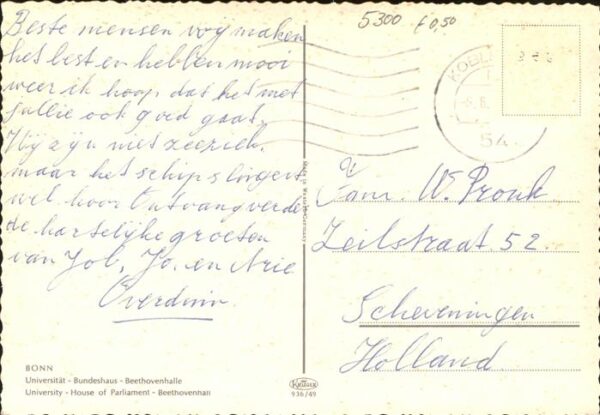 5300 € 0,50
Beste mensen vog maken
het best en hebben mooi
weer ik hoop dat het met
jullie ook goed gaat.
Wij zijn niet zeeziek.
maar het schip slingert
wel hoor Ontvang verder
de hartelijke groeten
van Job, Jo. en Arie
Overduin.
KOBL
54
Made in Western Germany
Fam. W. Pronk
Zeilstraat 52.
Scheveningen
Holland.
BONN
Universität - Bundeshaus - Beethovenhalle
University - House of Parliament - Beethovenhan
Krüger
936/49